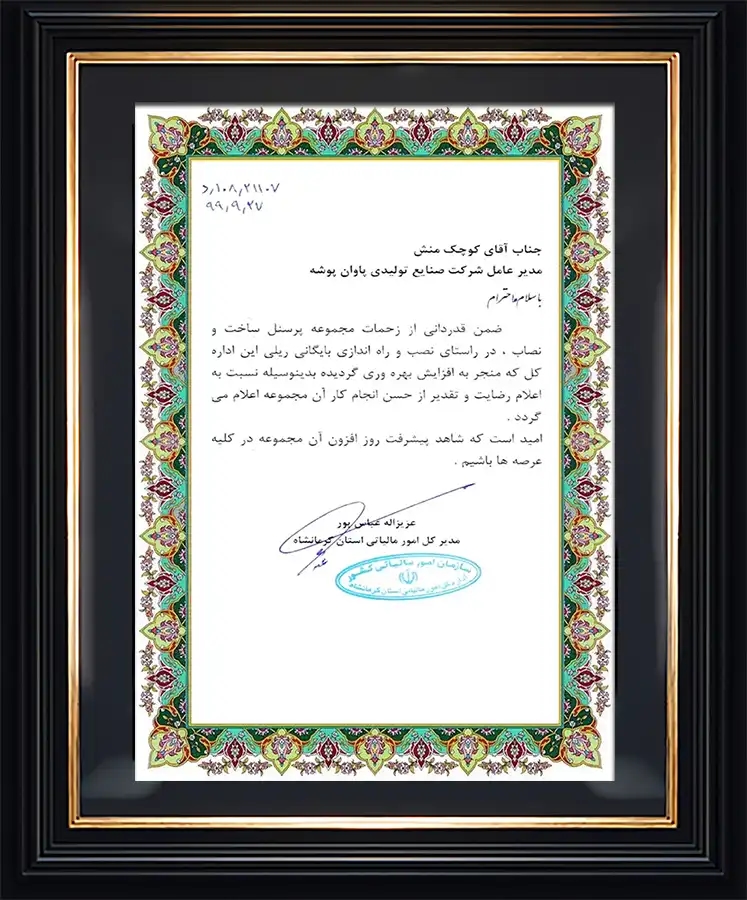 د/۱۰۸/۲۱۱۰۷
۹۹/۹/۲۷
جناب آقای کوچک منش
مدیر عامل شرکت صنایع تولیدی پاوان پوشه
با سلام و احترام
ضمن قدردانی از زحمات مجموعه پرسنل ساخت و
نصاب ، در راستای نصب و راه اندازی بایگانی ریلی این اداره
کل که منجر به افزایش بهره وری گردیده بدینوسیله نسبت به
اعلام رضایت و تقدیر از حسن انجام کار آن مجموعه اعلام می
گردد .
امید است که شاهد پیشرفت روز افزون آن مجموعه در کلیه
عرصه ها باشیم .
عزیزاله عباس پور
مدیر کل امور مالیاتی استان کرمانشاه
سازمان امور مالیاتی کشور
امور مالیاتی استان کرمانشاه